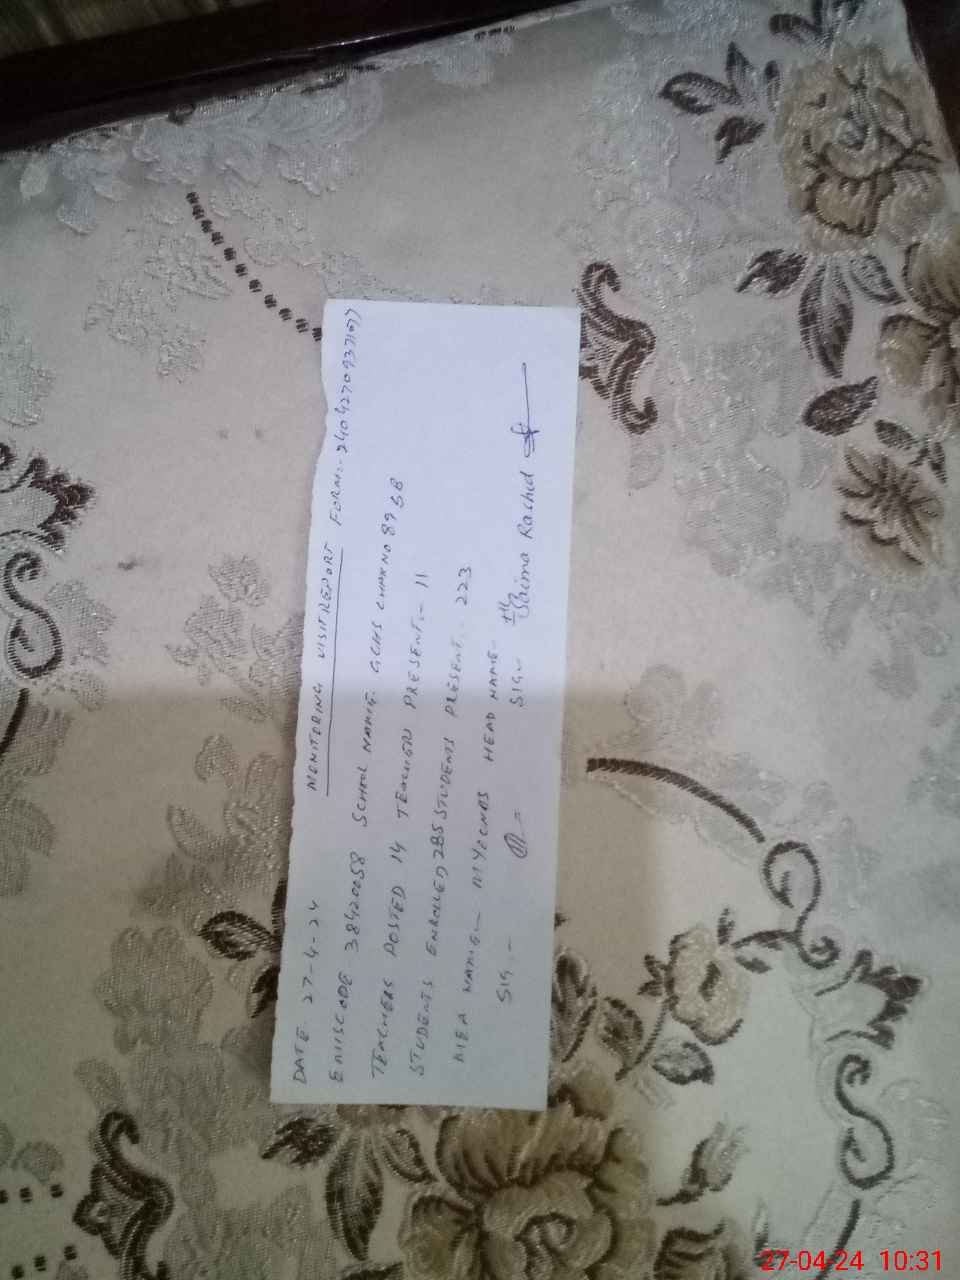 DATE 27-4-24 MONITORING VISIT REPORT FORM:-
EMISCODE 38420058 SCHOOL NAME. GGHS CHAK NO 89 SB
TEACHERS POSTED 14 TEACHERS PRESENT- 11
STUDENTS ENROLLED 285 STUDENTS PRESENT- 223
MEA NAME- HEAD NAME-
SIG.- SIG- Saima Rashid
27-04-24 10:31